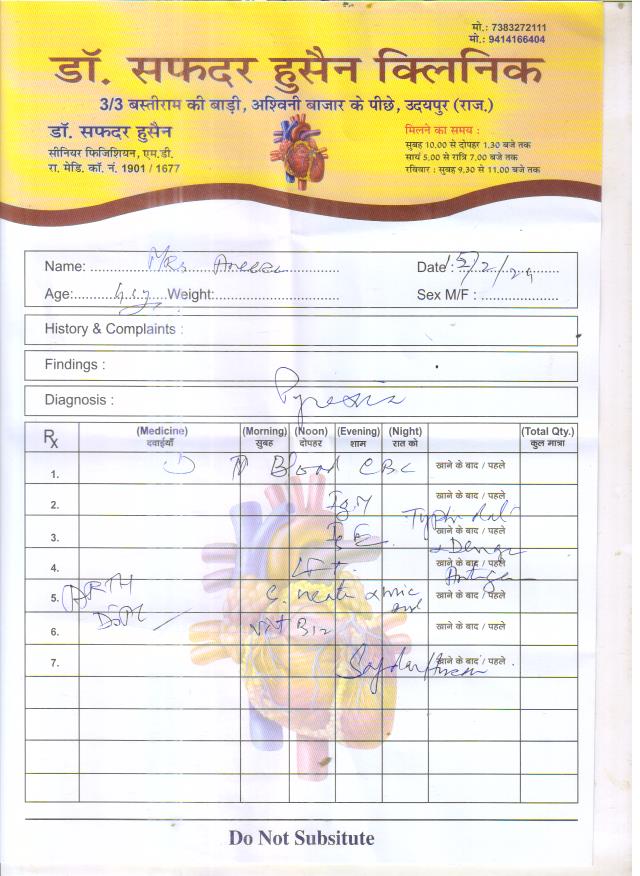 मो.: 7383272111
मो.: 9414166404
डॉ. सफदर हुसैन क्लिनिक
3/3 बस्तीराम की बाड़ी, अश्विनी बाजार के पीछे, उदयपुर (राज.)
डॉ. सफदर हुसैन
सीनियर फिजिशियन, एम.डी.
रा. मेडि. कॉ. नं. 1901 / 1677
मिलने का समय :
सुबह 10.00 से दोपहर 1.30 बजे तक
सायं 5.00 से रात्रि 7.00 बजे तक
रविवार : सुबह 9.30 से 11.00 बजे तक
Name: Mrs Date :
Age: Weight: Sex M/F :
History & Complaints :
Findings :
Diagnosis : Pyrexia
Rx (Medicine) (Morning) (Noon) (Evening) (Night) (Total Qty.)
दवाईयाँ सुबह दोपहर शाम रात को कुल मात्रा
1. Blood CBC खाने के बाद / पहले
2. IgM खाने के बाद / पहले
3. खाने के बाद / पहले
4. खाने के बाद / पहले
Antigen
5. खाने के बाद / पहले
6. Vit B12 खाने के बाद / पहले
7. खाने के बाद / पहले
Do Not Subsitute